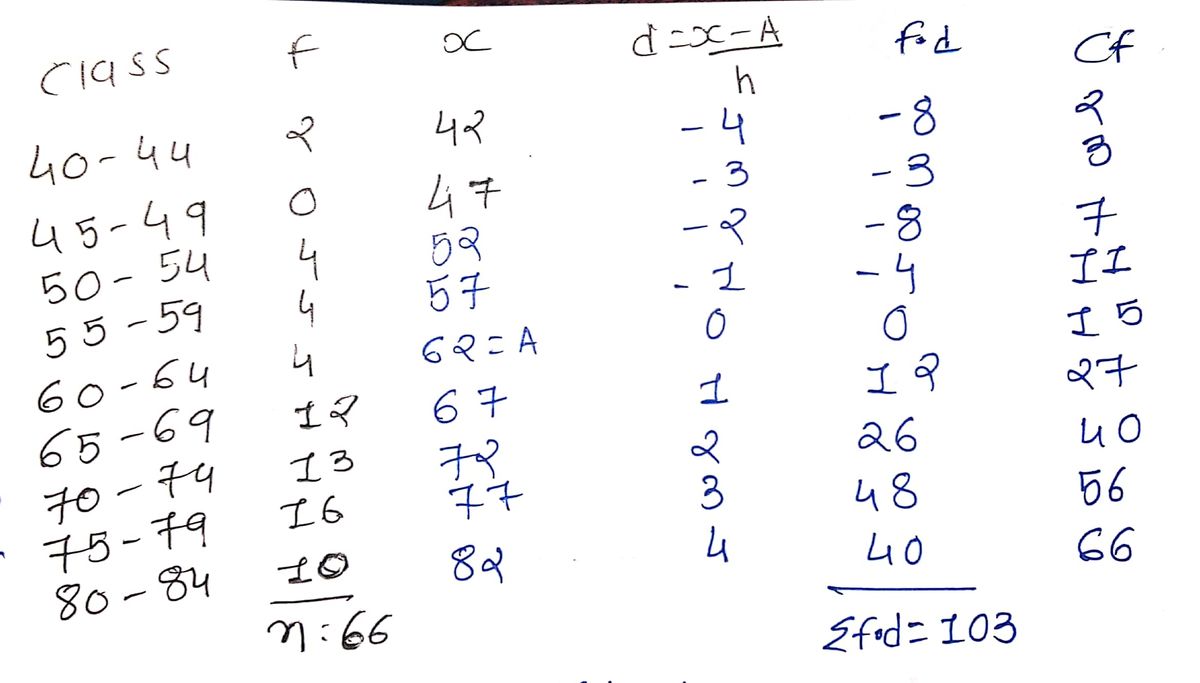 Class f x d=x-A/h f.d Cf
40-44 2 42 -4 -8 2
45-49 0 47 -3 -3 3
50-54 4 52 -2 -8 7
55-59 4 57 -1 -4 11
60-64 4 62=A 0 0 15
65-69 12 67 1 12 27
70-74 13 72 2 26 40
75-79 16 77 3 48 56
80-84 10 82 4 40 66
n:66 Σf.d=103